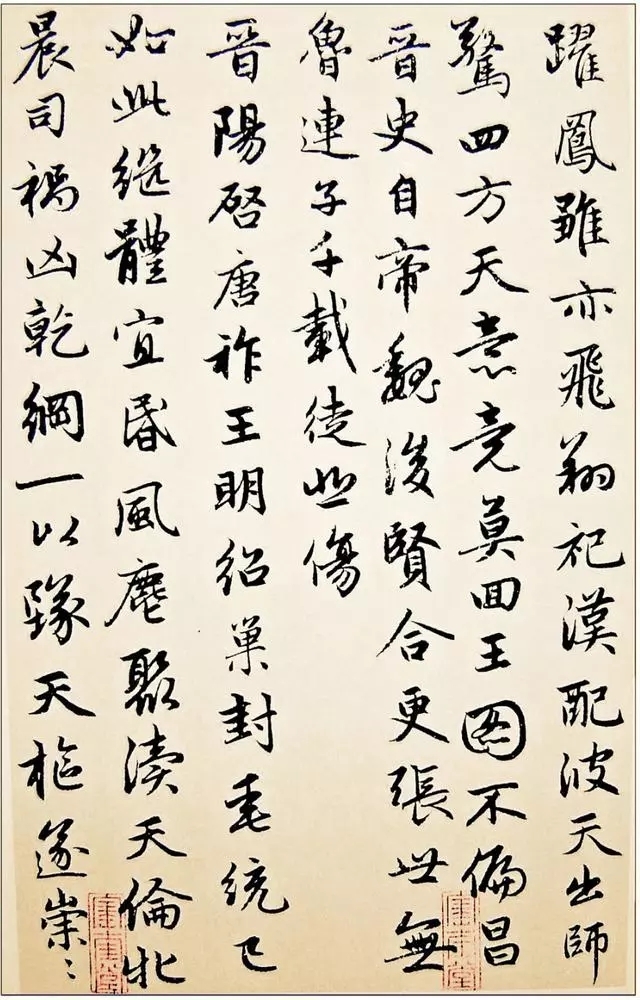 躍鳳雛亦飛翔祀漢配彼天出師
驚四方天意竟莫回王圖不偏昌
晉史自帝魏後賢合更張世無
魯連子千載徒悲傷
晉陽啓唐祚王明紹巢封垂統已
如此繼體宜昏風麀聚瀆天倫牝
晨司禍凶乾綱一以墜天樞遂崇〻